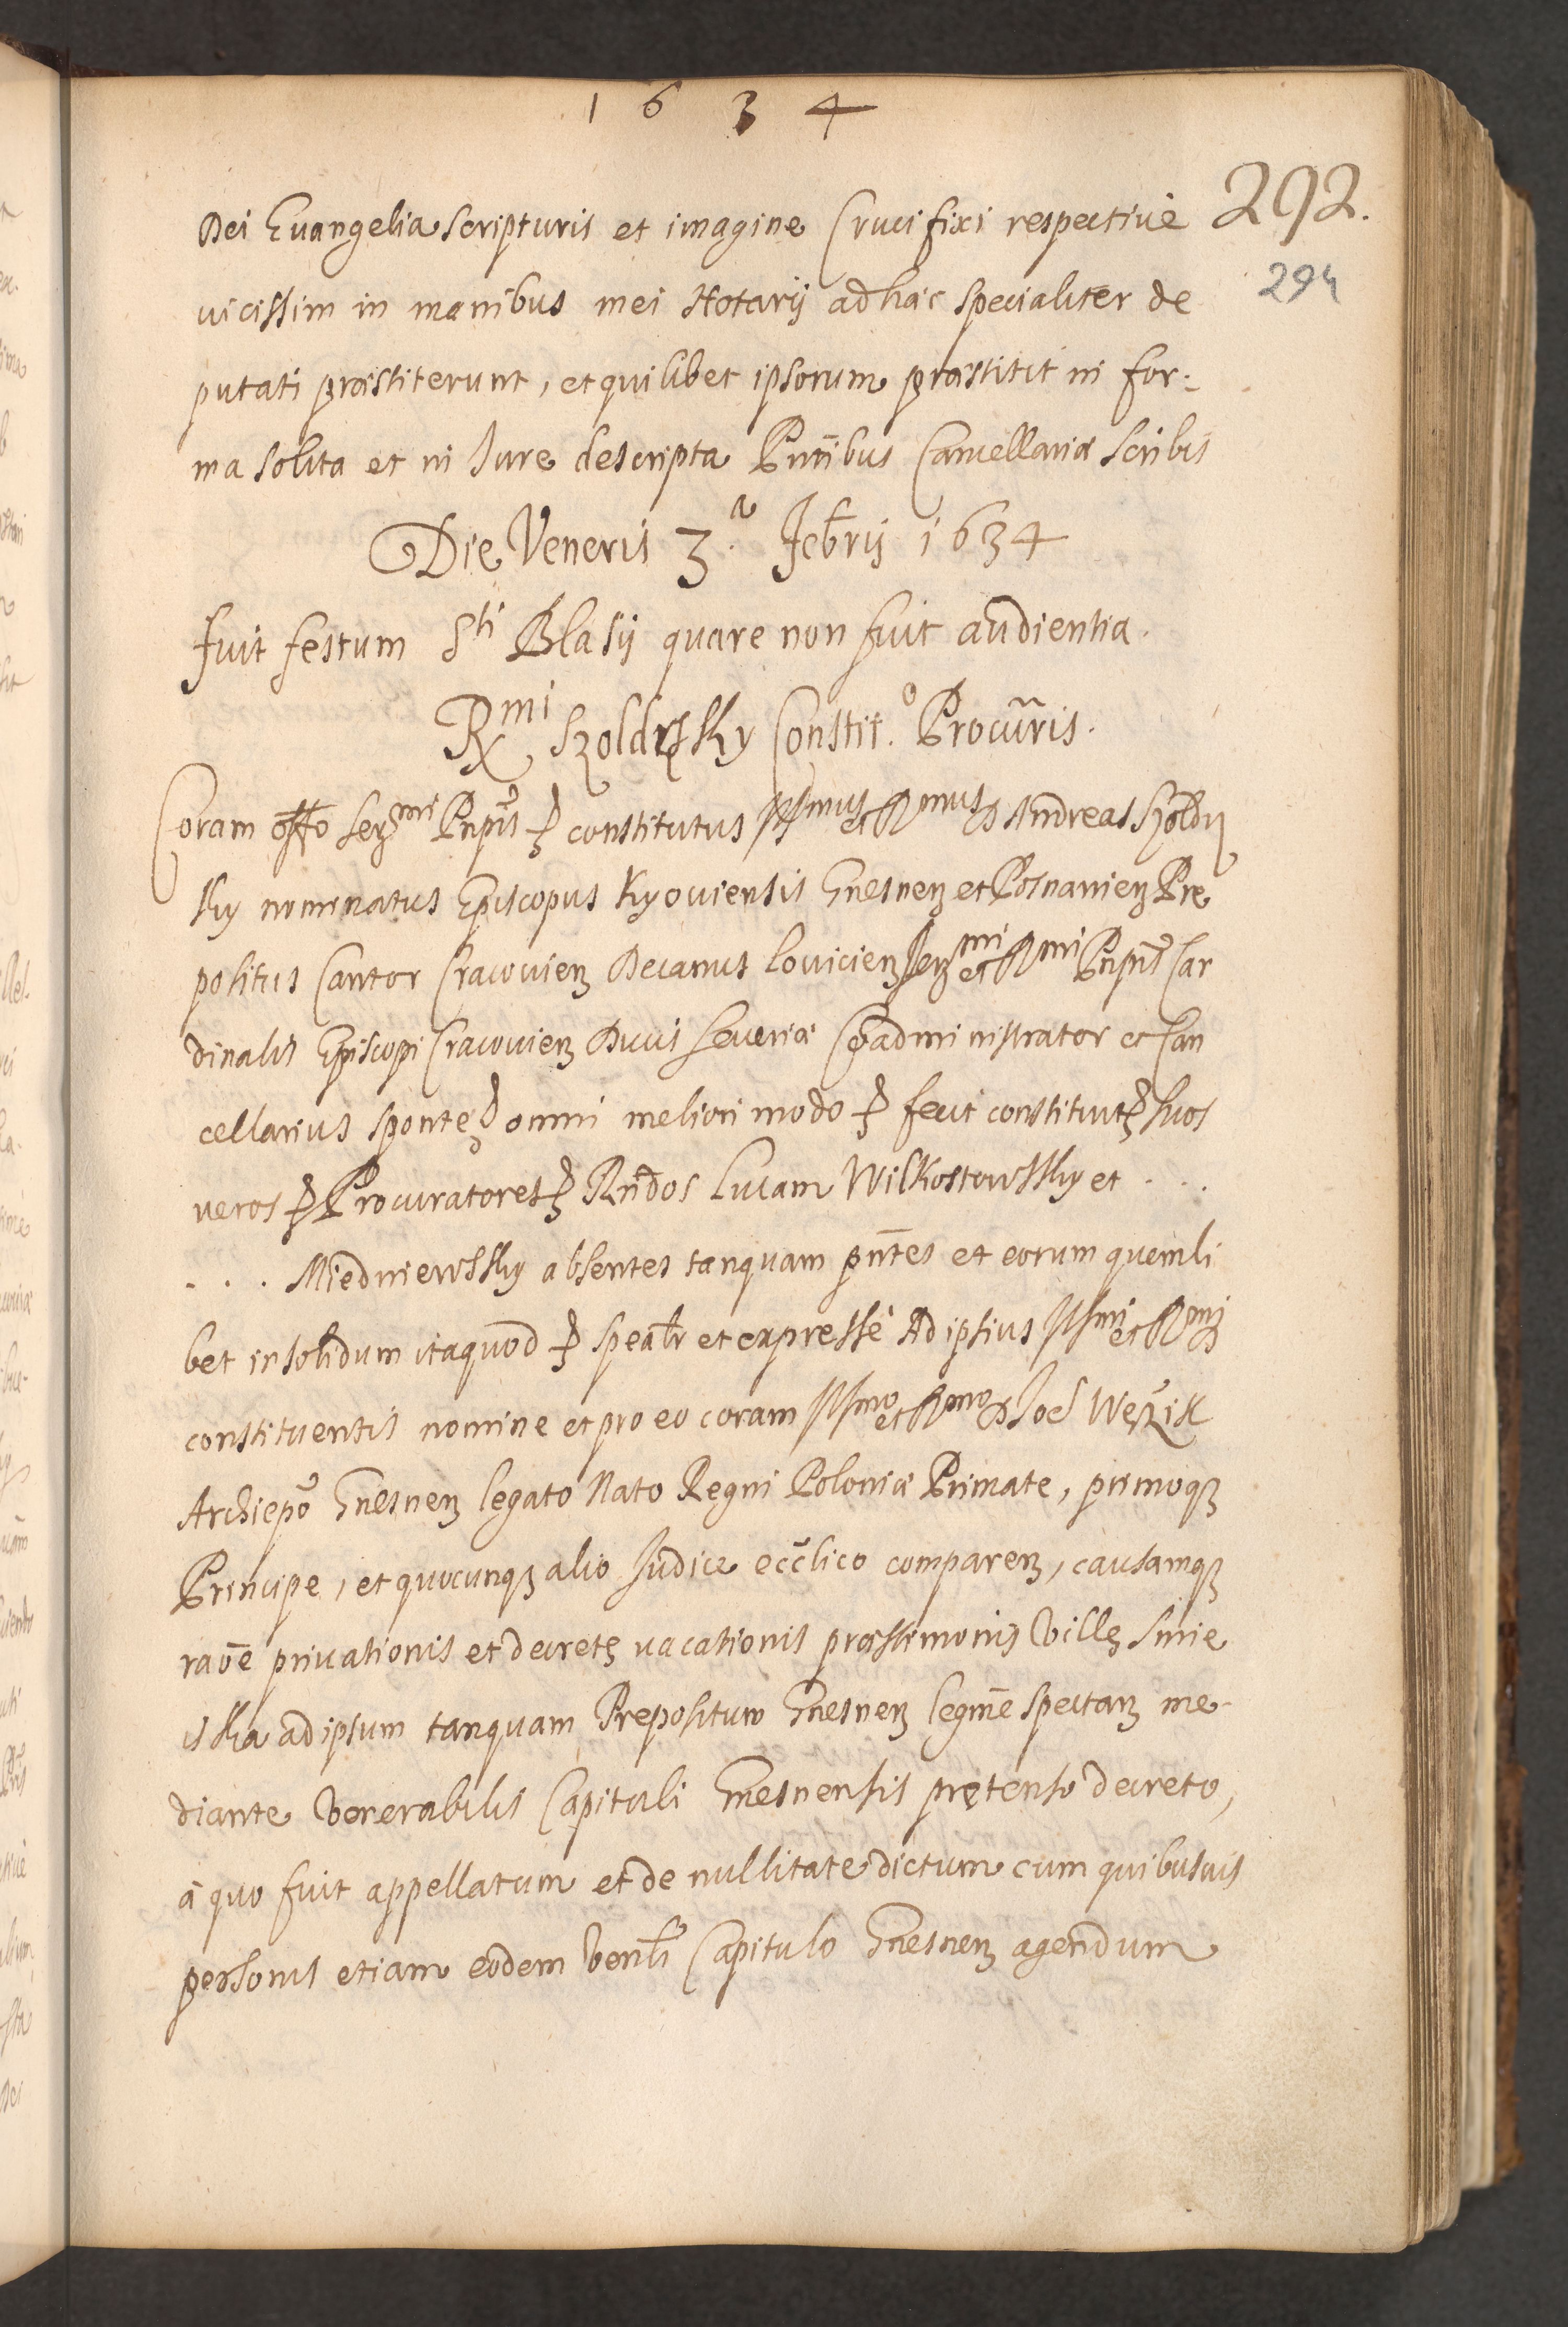 1634
292.
294
Dei Euangelia Scripturis et imagine Crucifixi respectiuè
uicissim in manibus mei Notarij ad hac specialiter de
putati præstiterunt, et quilibet ipsorum præstitit in for:
ma solita et in Jure descripta Pntibus Cancellariæ Scribis
Die Veneris 3.ª Febrij 1634
Fuit festum Sti Blasij quare non fuit audientia.
Rmi Szoldrsky Constit.º Procuris.
Coram offo Sermi Pnpis constitutus Illmus et Rmus D Andreas Szoldr
sky nominatus Episcopus Kyouiensis Gnesnen et Posnanien Prę
positus Cantor Cracouien Decanus Louicien Sermi et Rmi Pnpis Car
dinalis Episcopi Cracouien Ducis Seueriæ Coadministrator et Can
cellarius sponte omni meliori modo fecit constituit suos
ueros Procuratores Rndos Lucam Wilkostowsky et ...
... Miedniewsky absentes tanquam pntes et eorum quemli
bet in solidum itaquod spealr et expressè Ad ipsius Illmi et Rmi D
constituentis nomine et pro eo coram Illmo et Rmo D Joe Wężik
Archiepo Gnesnen legato Nato Regni Poloniæ Primate, primoq3
Principe, et quocunq3 alio Judice ecclico comparen, causamq3
raoe priuationis et decretę uacationis præstimonij Villę Smie
iska ad ipsum tanquam Prepositum Gnesnen legme spectan me-
diante Venerabilis Capituli Gnesnensis prętenso decreto,
à quo fuit appellatum et de nullitate dictum cum quibusuis
personis etiam eodem Venli Capitulo Gnesnen agendum